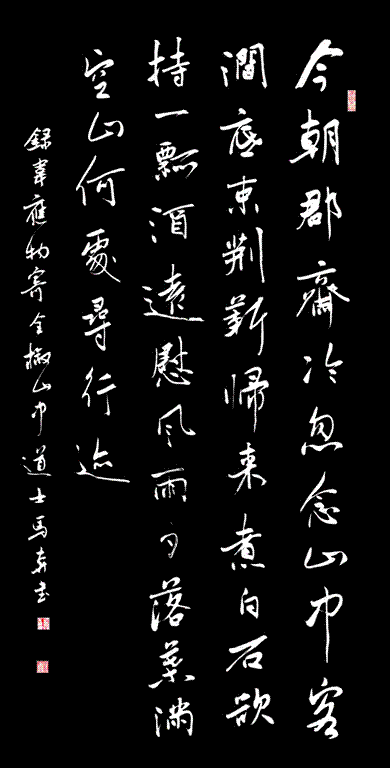 今朝郡齋冷忽念山中客
澗底束荊薪歸來煮白石欲
持一瓢酒遠慰風雨夕落葉滿
空山何處尋行迹
錄韋應物寄全椒山中道士馬書